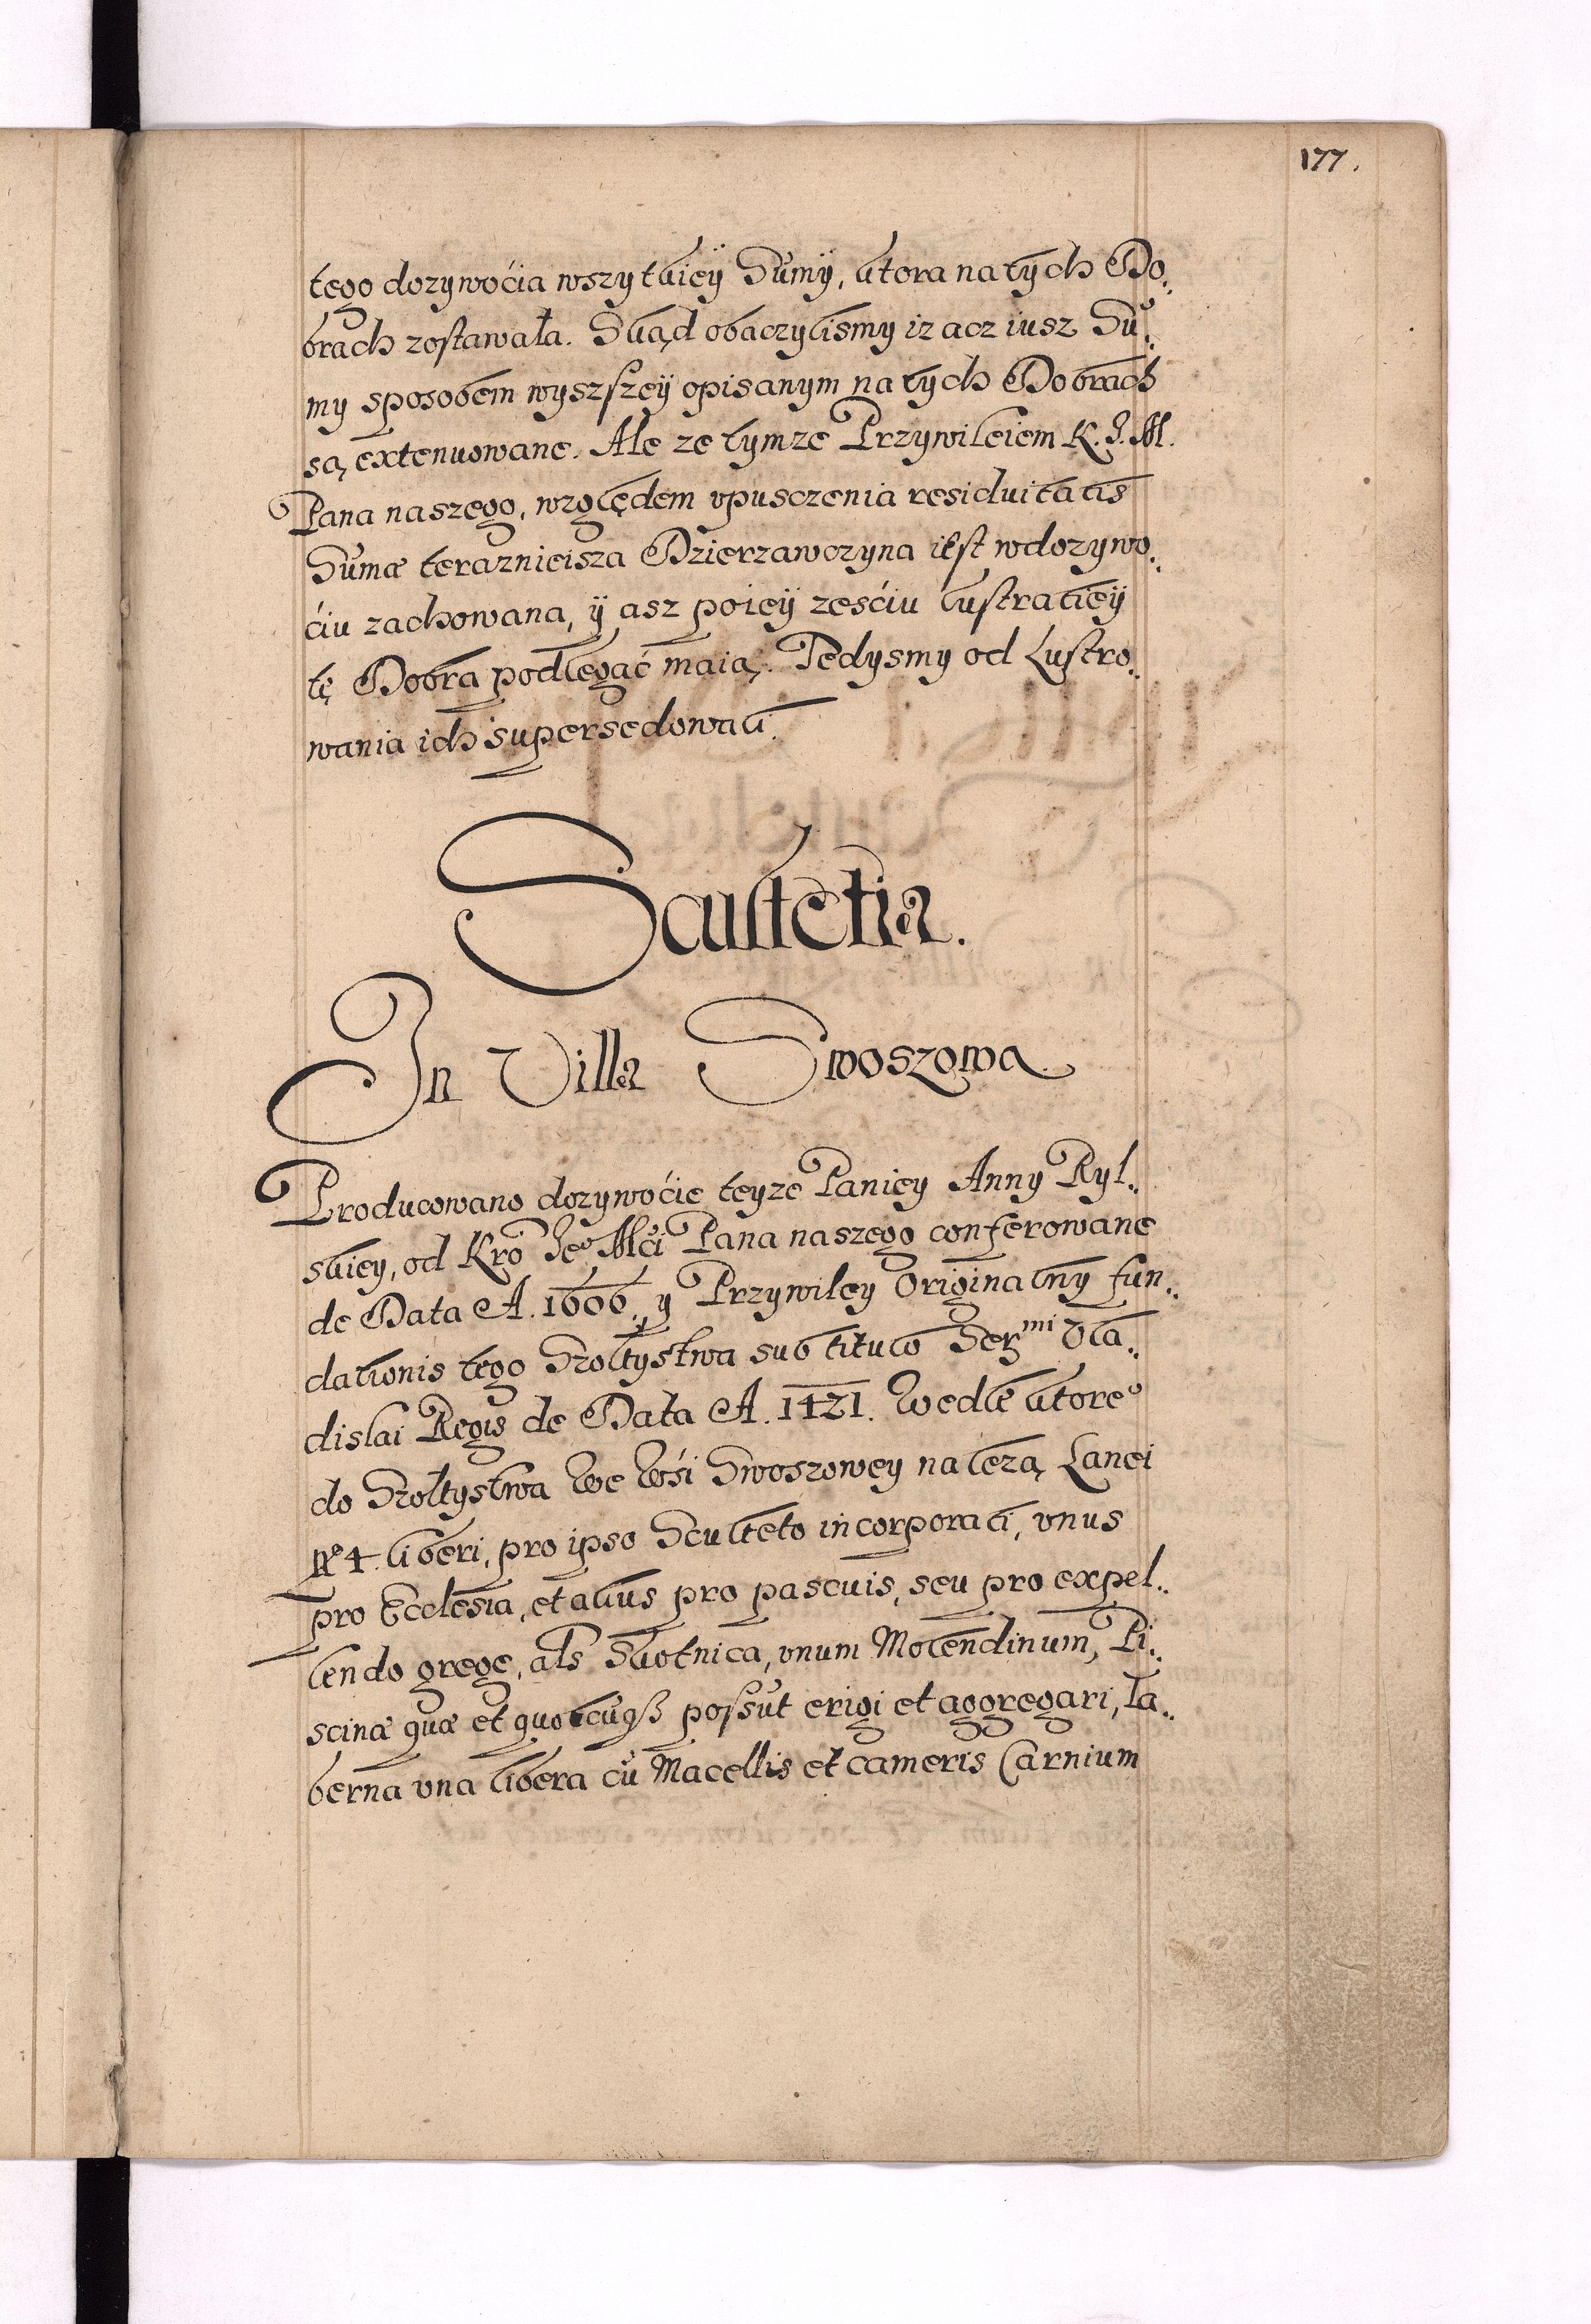 177.
tego dozywoćia wszytkieÿ Sum̃ÿ, ktora na tÿch Do„
brach zostawała. Skąd obaczylismy iz acz iusz Sũ„
my sposobem wyszszeÿ opisanym na tych Dobrach
są extenuowane. Ale ze tymze Przywileiem K. J. M.
Pana naszego, względem vpusczenia residuitatis
Sũmæ teraznieisza Dzierzawczyna iest wdozywo„
ćiu zachowana, ÿ asz poieÿ zesćiu lustratieÿ
tę Dobra podlegać maią. Tedysmy od Lustro„
wania ich supersedowali.
Scultetia.
In Villa Swoszowa.
Producowano dozywoćie teyze Paniey Anny Ryl„
skiey, od Kro Jeº Mci Pana naszego conferowane
de Data A. 1606. y Przywiley Originalny fun„
dationis tego Szołtystwa sub titulo Serᵐⁱ Vla„
dislai Regis de Data A. 1421. Wedle ktoreº
do Szołtystwa We Wśi Swoszowey nalezą Lanei
Nº 4. liberi, pro ipso Sculteto incorporati, vnus
pro Ecclesia, et alius pro pascuis, seu pro expel„
lendo grege, als Skotnica, vnum Molendinum, Pi„
scinæ quæ et quotcũqȝ possũt erigi et aggregari, Ta„
berna vna libera cũ Macellis et cameris Carnium